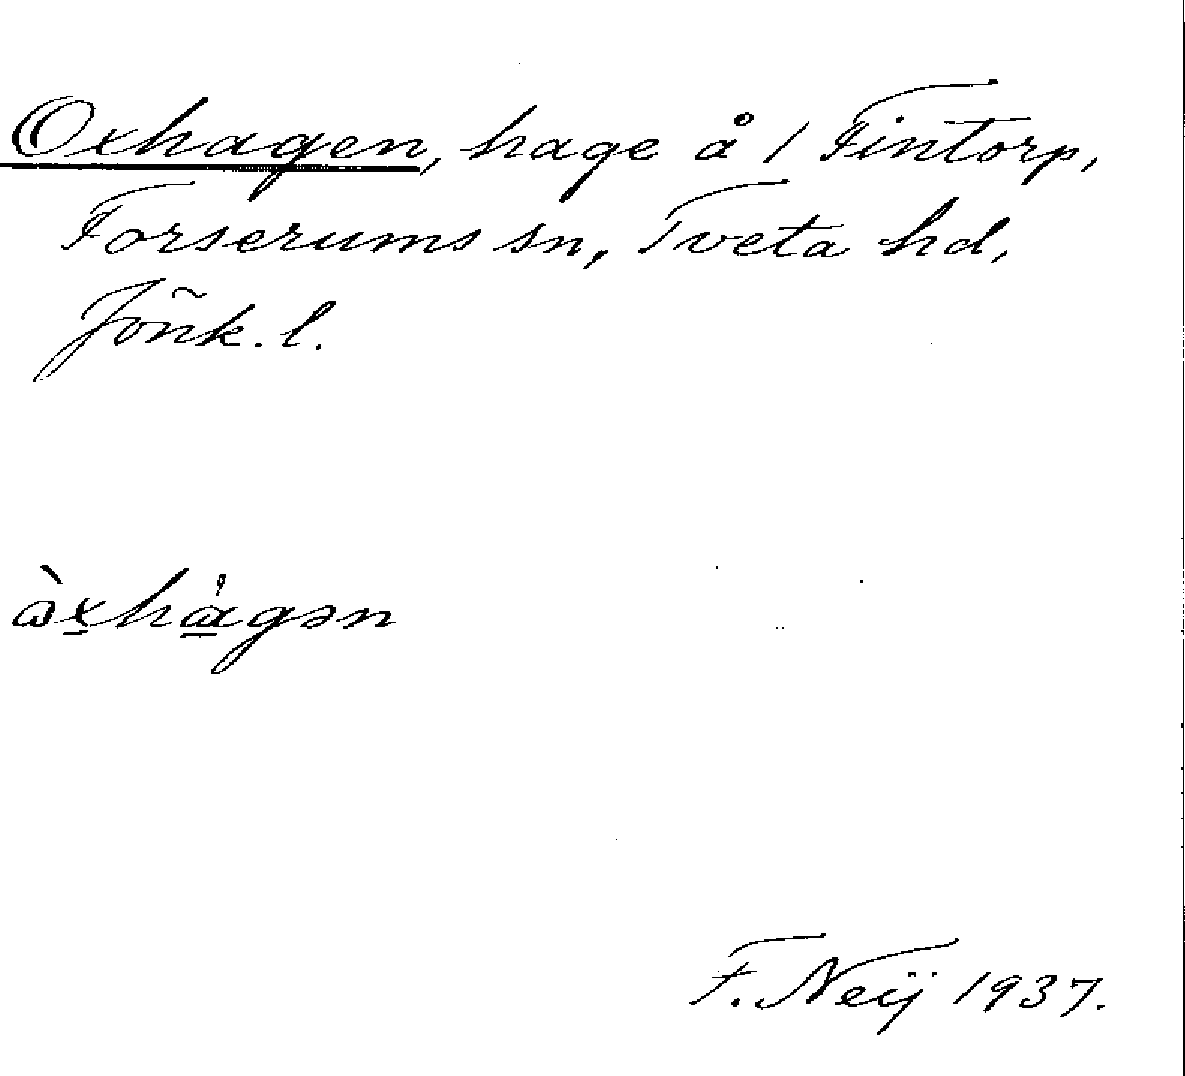 Oxhagen, hage å / Fintorp,
Forserums sn, Tveta hd,
Jönk. l.
F. Neij 1937.